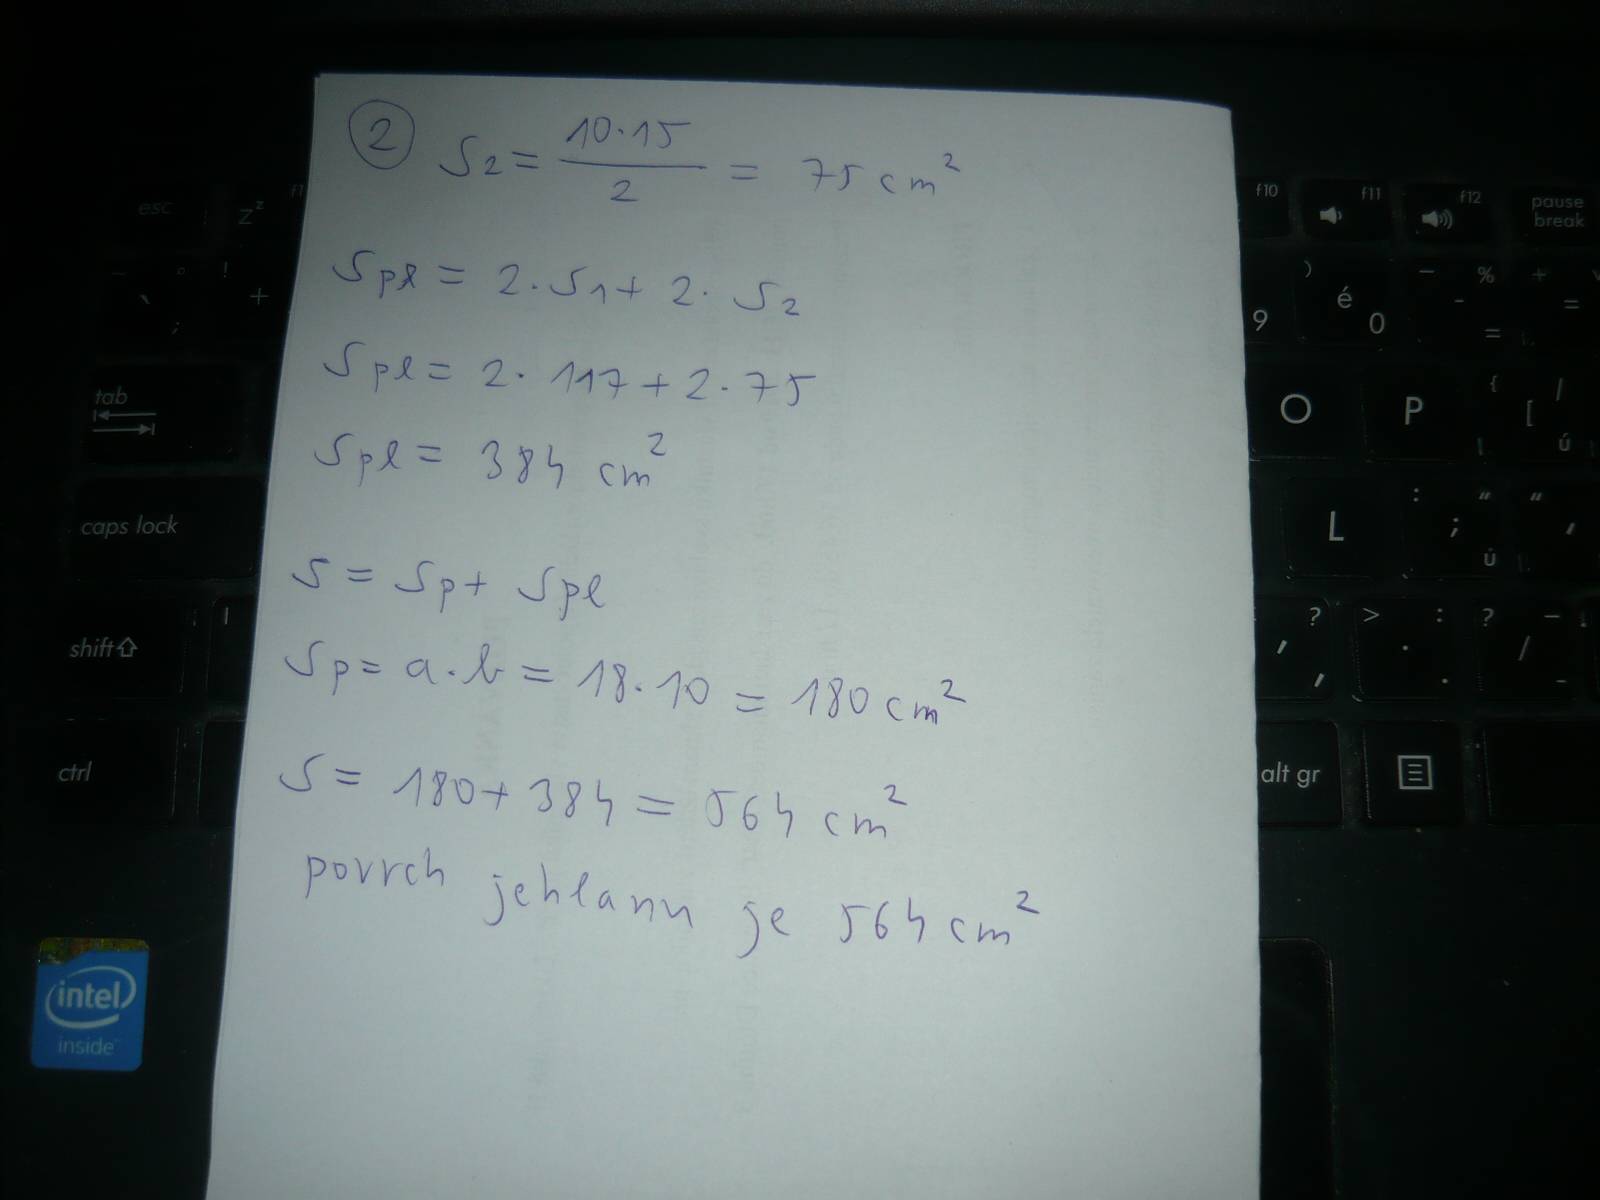 2 S2 = 10·15 / 2 = 75 cm²
Spl = 2·S1 + 2·S2
Spl = 2·117 + 2·75
Spl = 384 cm²
S = Sp + Spl
Sp = a·b = 18·10 = 180 cm²
S = 180 + 384 = 564 cm²
povrch jehlanu je 564 cm²
esc
f10
f11
f12
pause
break
tab
caps lock
shift
ctrl
alt gr
9
é
0
O
P
L
intel
inside